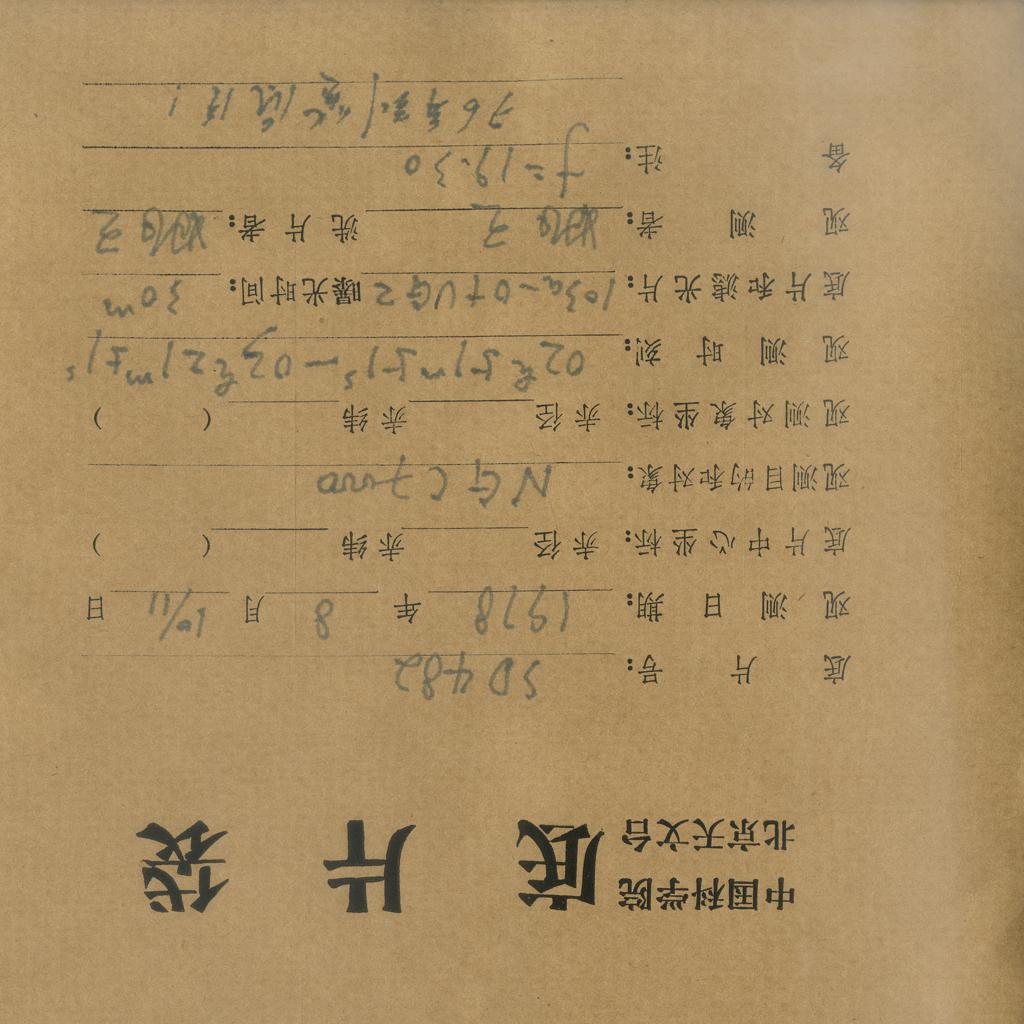 中国科学院
北京天文台
底片袋
底片号: SD482
观测日期: 1978年8月10/11日
底片中心坐标: 赤径 赤纬 ( )
观测目的和对象: NGC7000
观测对象坐标: 赤径 赤纬 ( )
观测时刻: 02h51m51s—03h21m51s
底片和滤光片: 103a-O+UG2 曝光时间: 30m
观测者: 洗片者:
备注: f=19.30